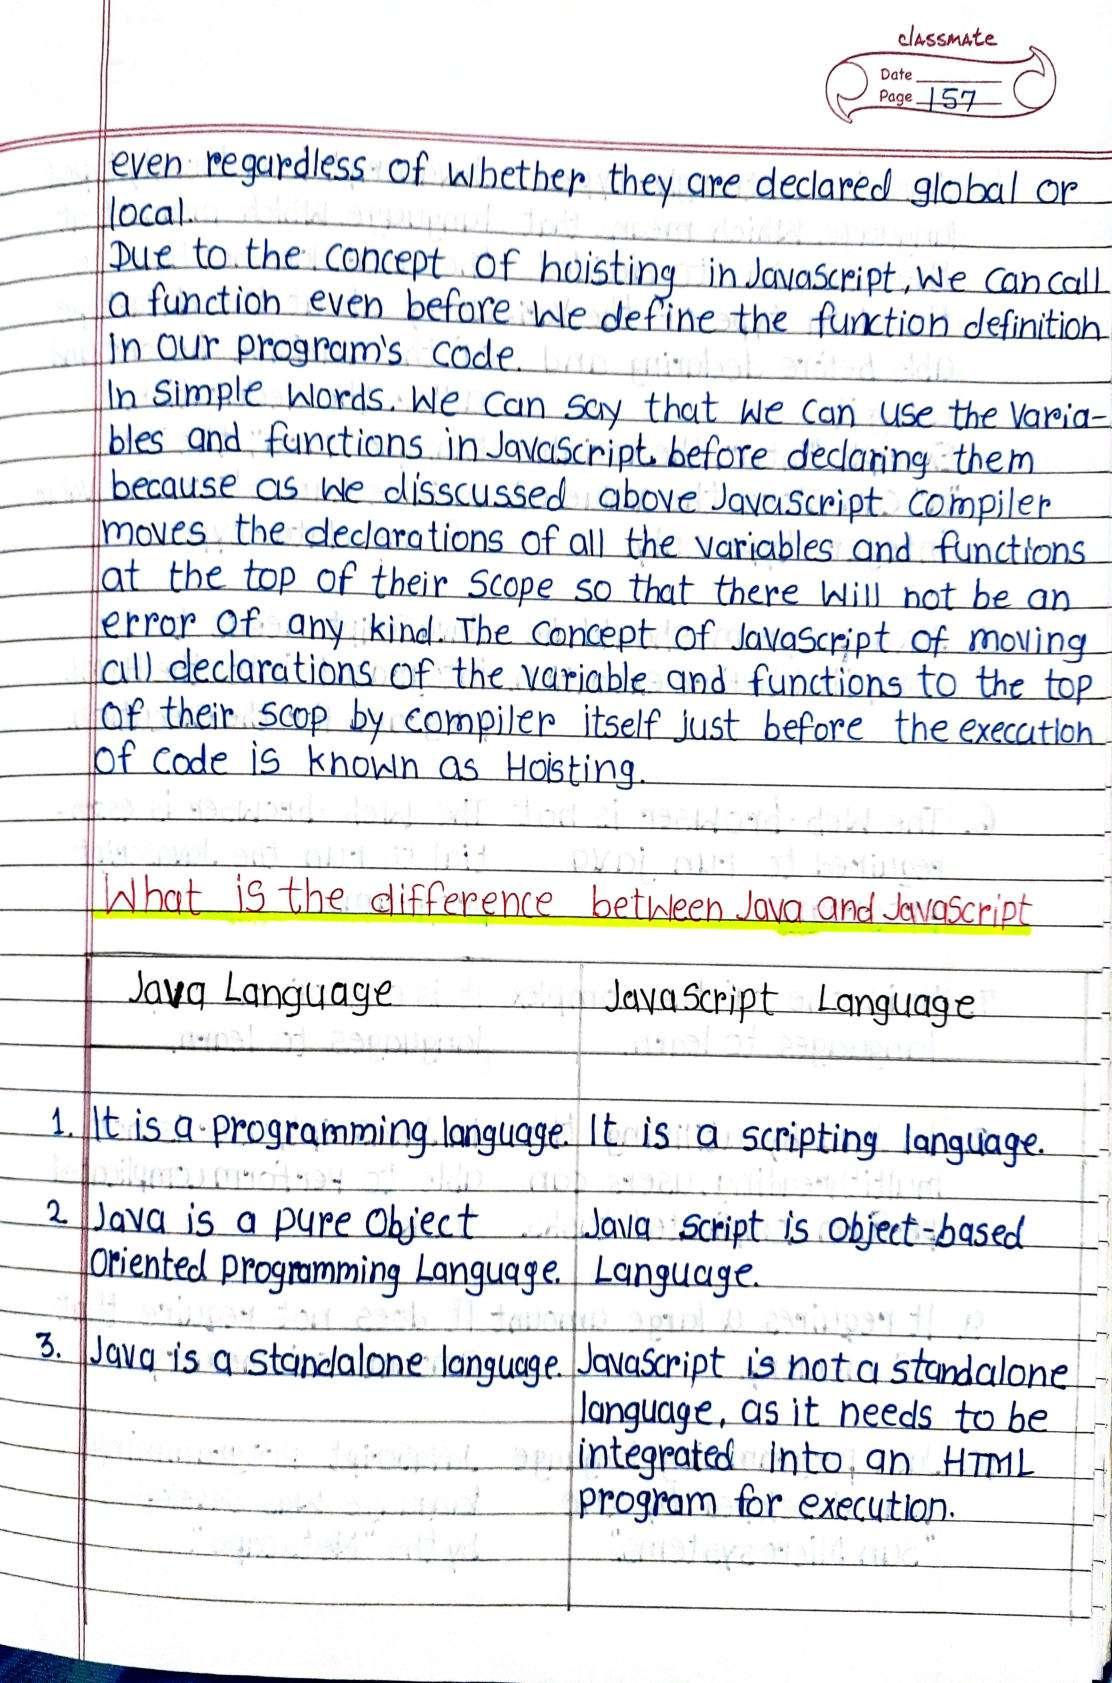 classmate
Date
Page 157
even regardless of whether they are declared global or
local.
Due to the concept of hoisting in Javascript, we can call
a function even before we define the function definition
in our program's code.
In simple words. We can say that we can use the varia-
bles and functions in Javascript before declaring them
because as we disscussed above Javascript compiler
moves the declarations of all the variables and functions
at the top of their scope so that there will not be an
error of any kind. The concept of Javascript of moving
all declarations of the variable and functions to the top
of their scop by compiler itself just before the execution
of code is known as Hoisting.
What is the difference between Java and Javascript
Java Language JavaScript Language
1. It is a programming language. It is a scripting language.
2 Java is a pure Object Java script is object-based
Oriented programming Language. Language.
3. Java is a standalone language. JavaScript is not a standalone
language, as it needs to be
integrated into an HTML
program for execution.